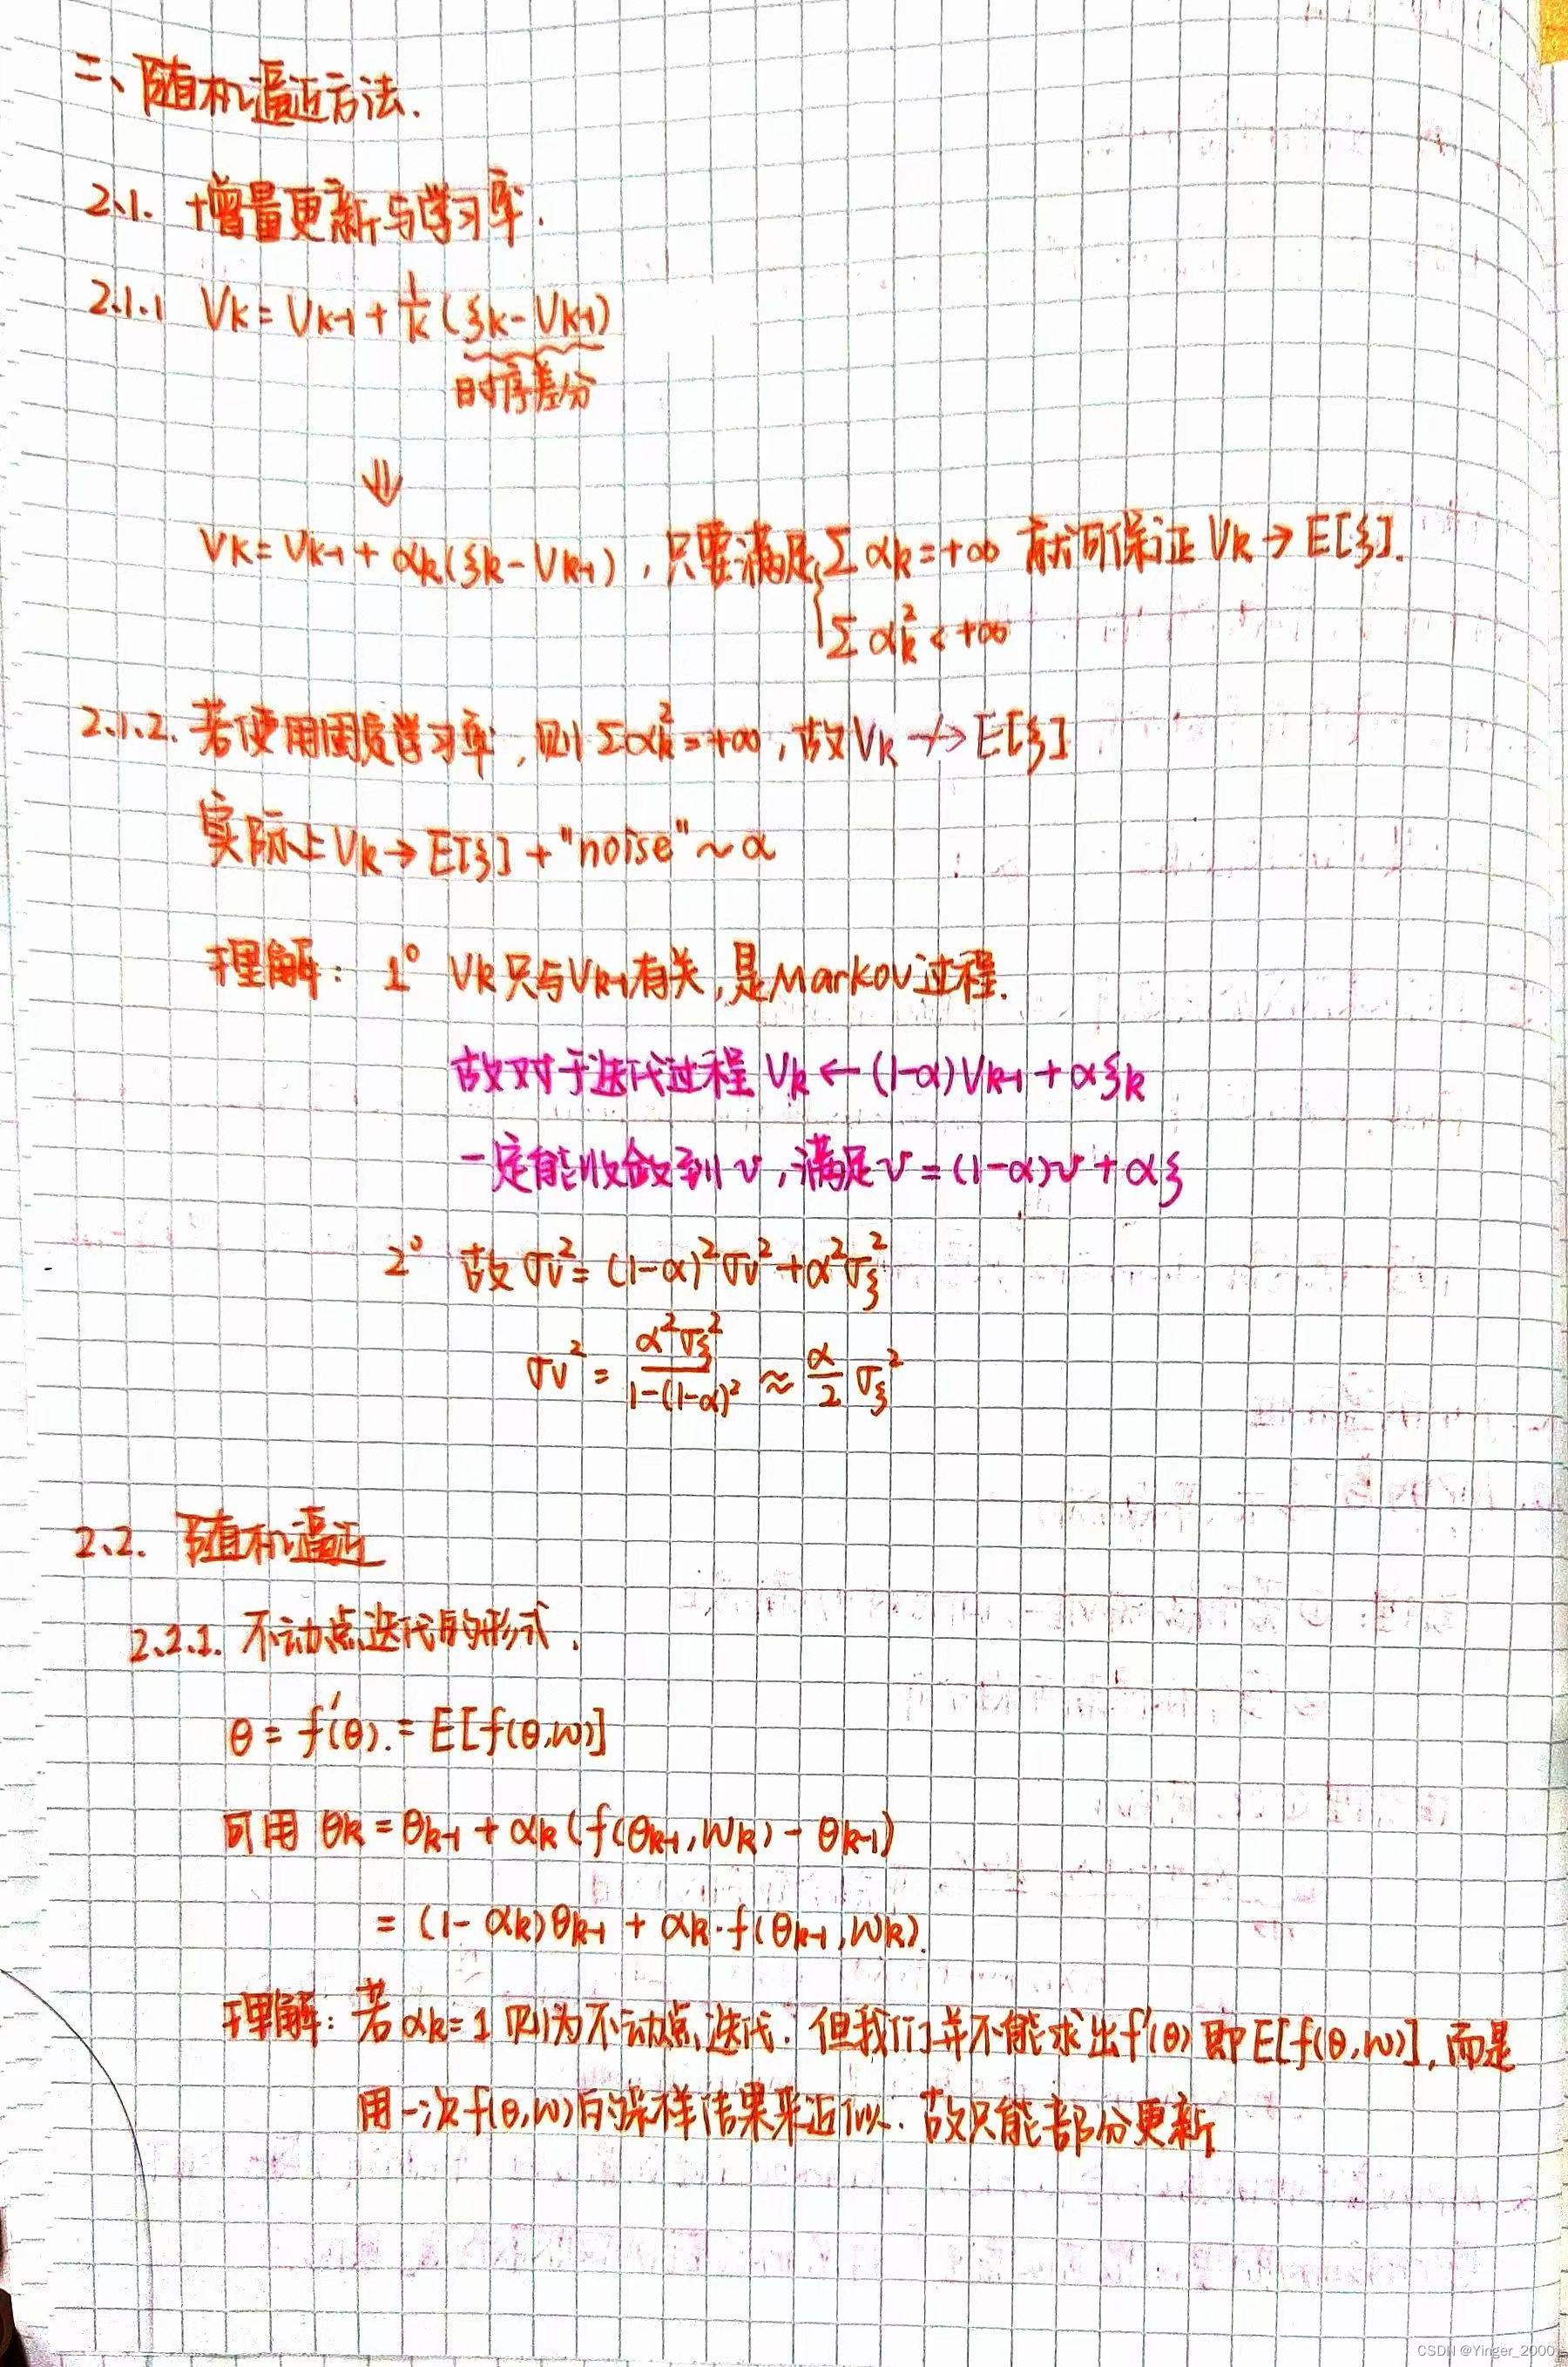 二、随机逼近方法.
2.1. 增量更新与学习率.
2.1.1 Vk = Vk-1 + 1/k (ξk - Vk-1)
时序差分
⇓
Vk = Vk-1 + αk(ξk - Vk-1), 只要满足 { Σ αk = +∞ 就可保证 Vk → E[ξ].
Σ αk² < +∞
2.1.2. 若使用固定学习率, 则 Σαk² = +∞, 故 Vk ↛ E[ξ]
实际上 Vk → E[ξ] + "noise" ~ α
理解: 1° Vk 只与 Vk-1 有关, 是 Markov 过程.
故对于迭代过程 Vk ← (1-α)Vk-1 + αξk
一定能收敛到 v, 满足 v = (1-α)v + αξ
2° 故 σv² = (1-α)²σv² + α²σξ²
σv² = α²σξ² / (1-(1-α)²) ≈ α/2 σξ²
2.2. 随机逼近
2.2.1. 不动点迭代的形式.
θ = f'(θ). = E[f(θ,w)]
可用 θk = θk-1 + αk (f(θk-1, wk) - θk-1)
= (1-αk)θk-1 + αk·f(θk-1, wk).
理解: 若 αk = 1 则为不动点迭代. 但我们并不能求出 f'(θ) 即 E[f(θ,w)], 而是
用一次 f(θ,w) 的采样结果来近似. 故只能部份更新
CSDN @Yinger_2000